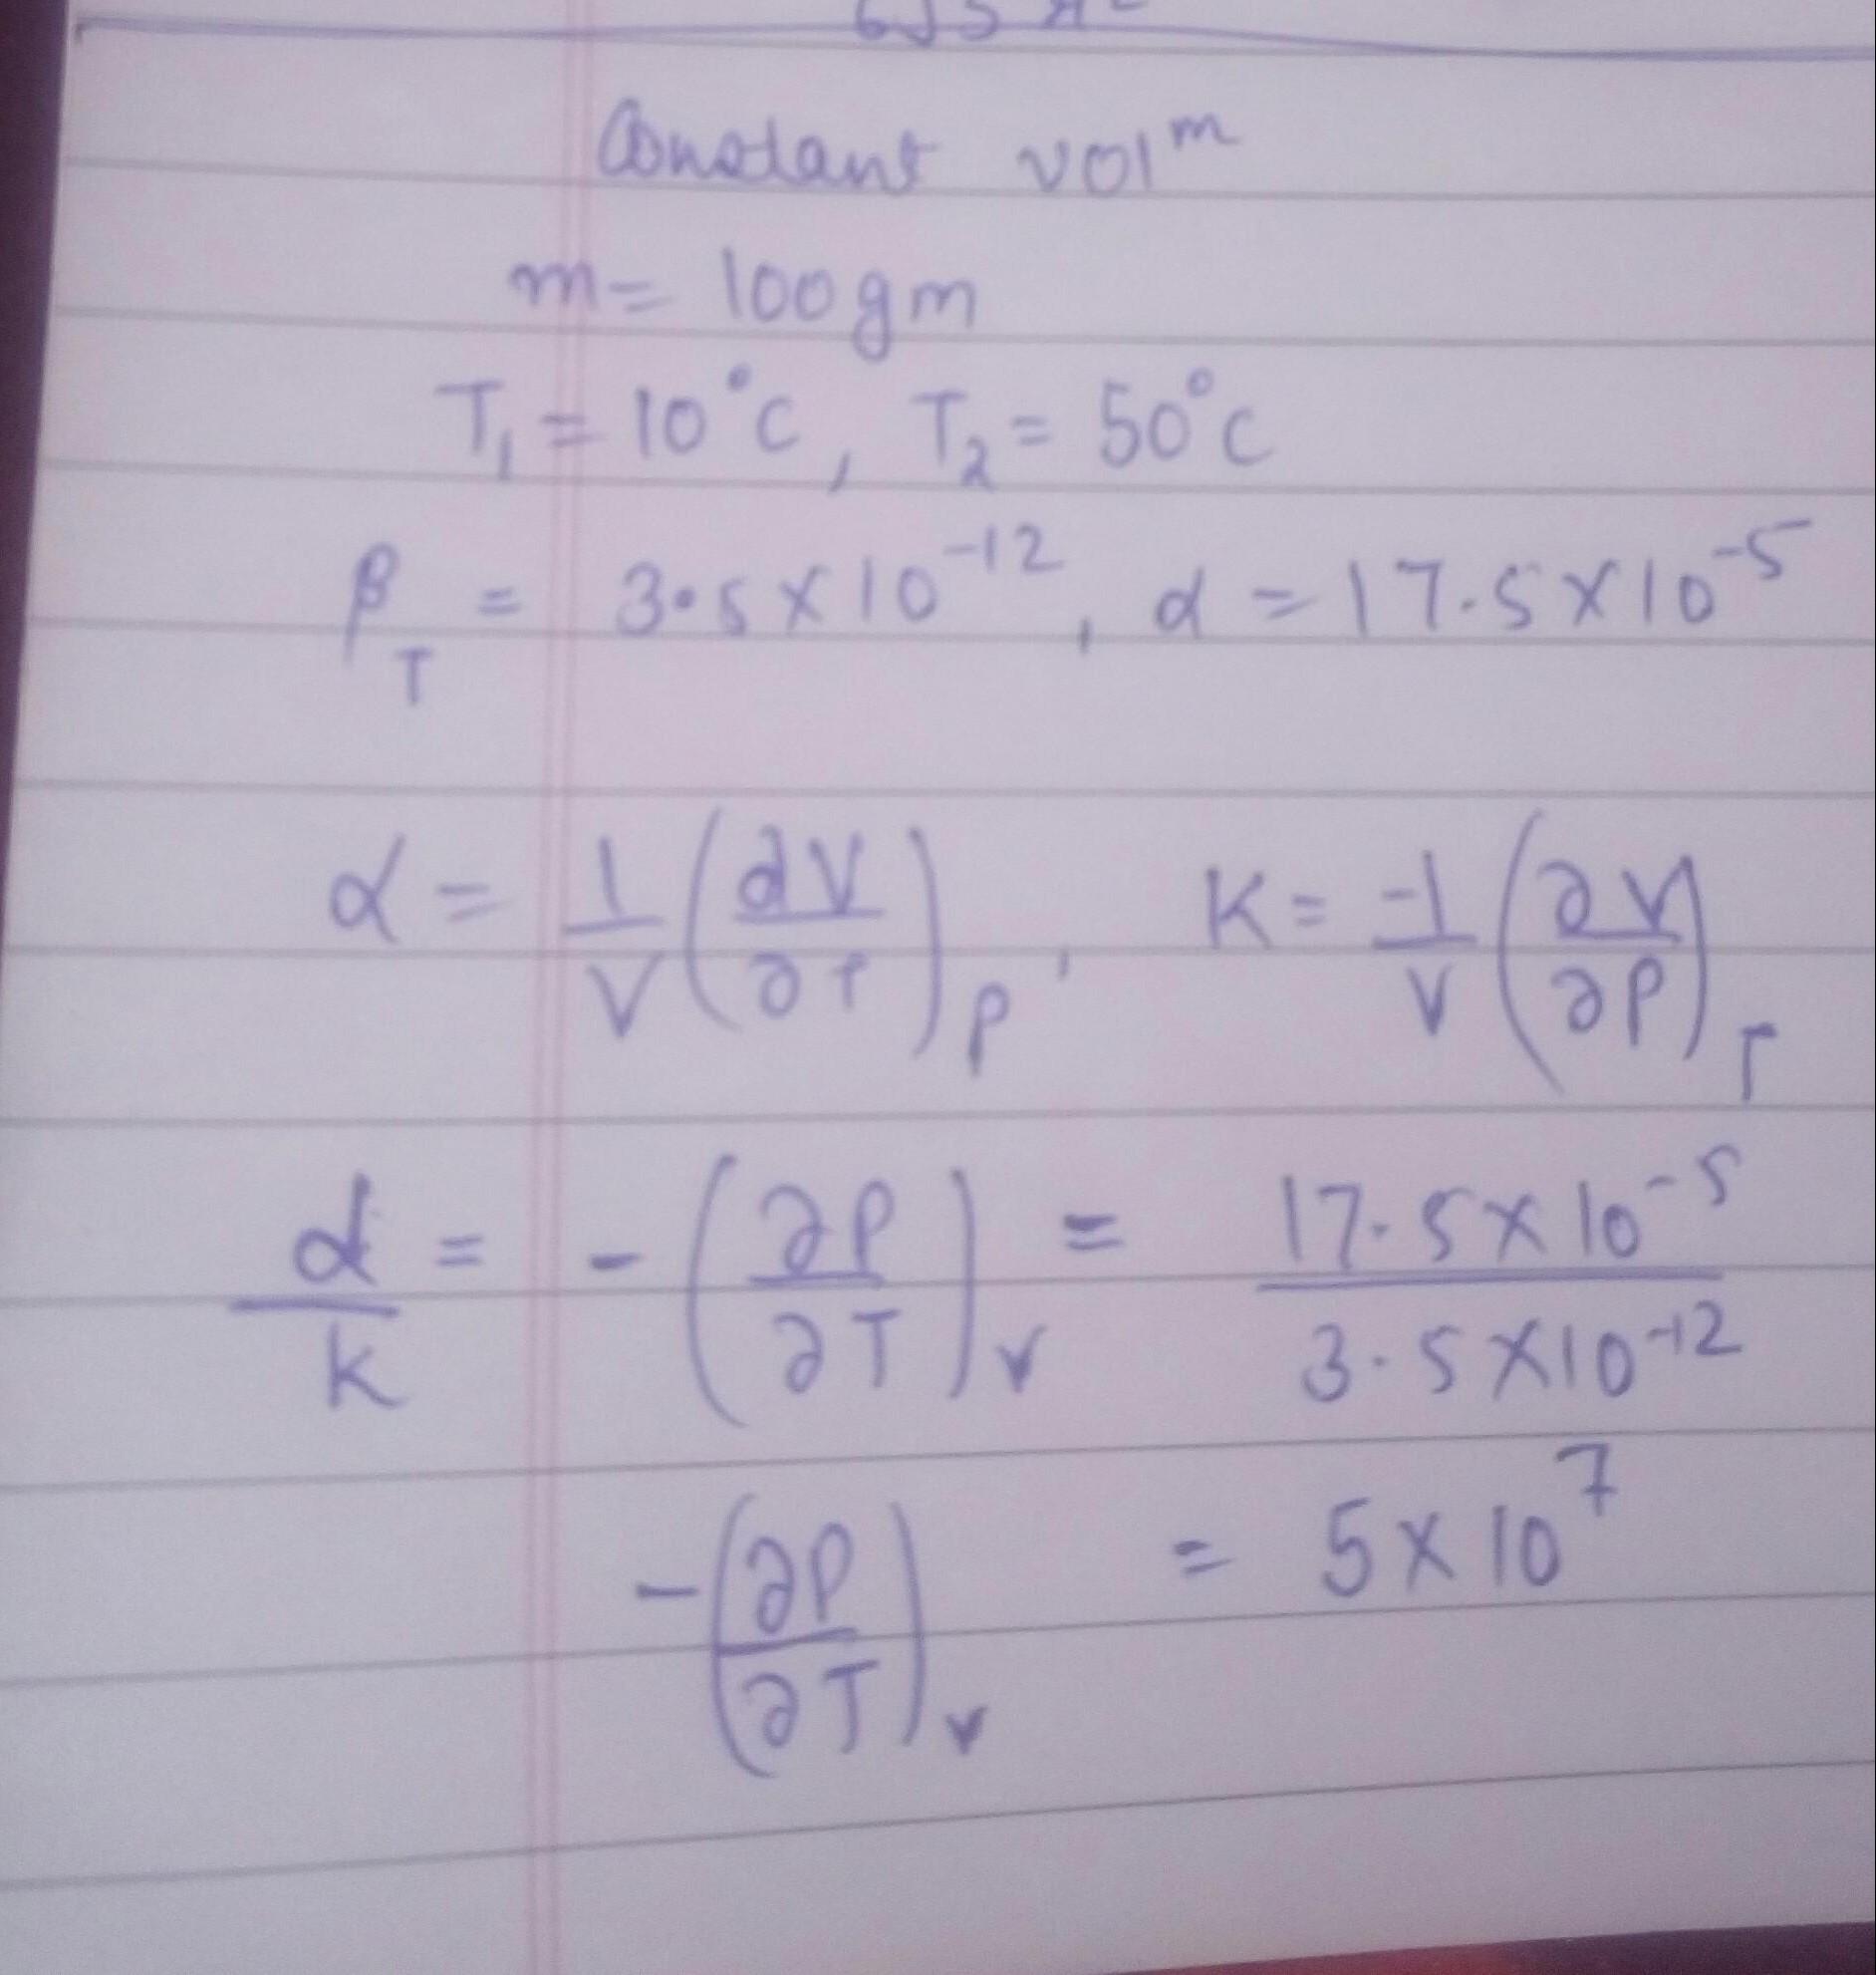 Constant vol^m
m = 100 gm
T₁ = 10°C, T₂ = 50°C
β_T = 3.5 × 10^-12, α = 17.5 × 10^-5
α = 1/V (∂V/∂T)_P, K = -1/V (∂V/∂P)_T
α/K = -(∂P/∂T)_V = 17.5 × 10^-5 / 3.5 × 10^-12
-(∂P/∂T)_V = 5 × 10^7